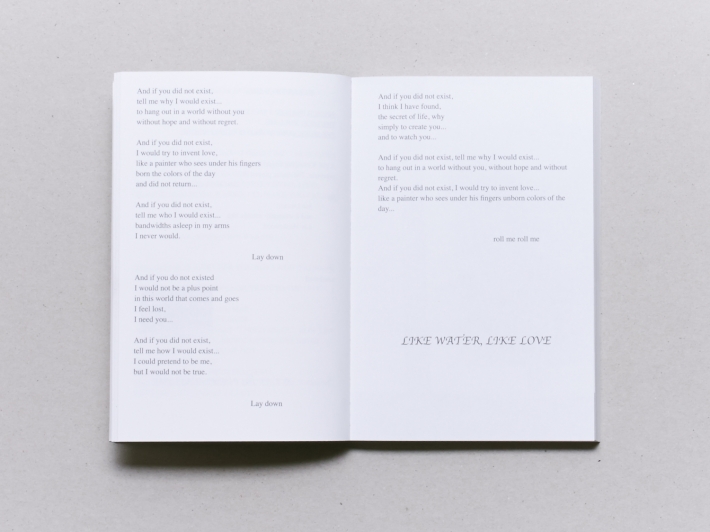 And if you did not exist,
tell me why I would exist...
to hang out in a world without you
without hope and without regret.
And if you did not exist,
I would try to invent love,
like a painter who sees under his fingers
born the colors of the day
and did not return...
And if you did not exist,
tell me who I would exist...
bandwidths asleep in my arms
I never would.
Lay down
And if you do not existed
I would not be a plus point
in this world that comes and goes
I feel lost,
I need you...
And if you did not exist,
tell me how I would exist...
I could pretend to be me,
but I would not be true.
Lay down
And if you did not exist,
I think I have found,
the secret of life, why
simply to create you...
and to watch you...
And if you did not exist, tell me why I would exist...
to hang out in a world without you, without hope and without
regret.
And if you did not exist, I would try to invent love...
like a painter who sees under his fingers unborn colors of the
day...
roll me roll me
LIKE WATER, LIKE LOVE